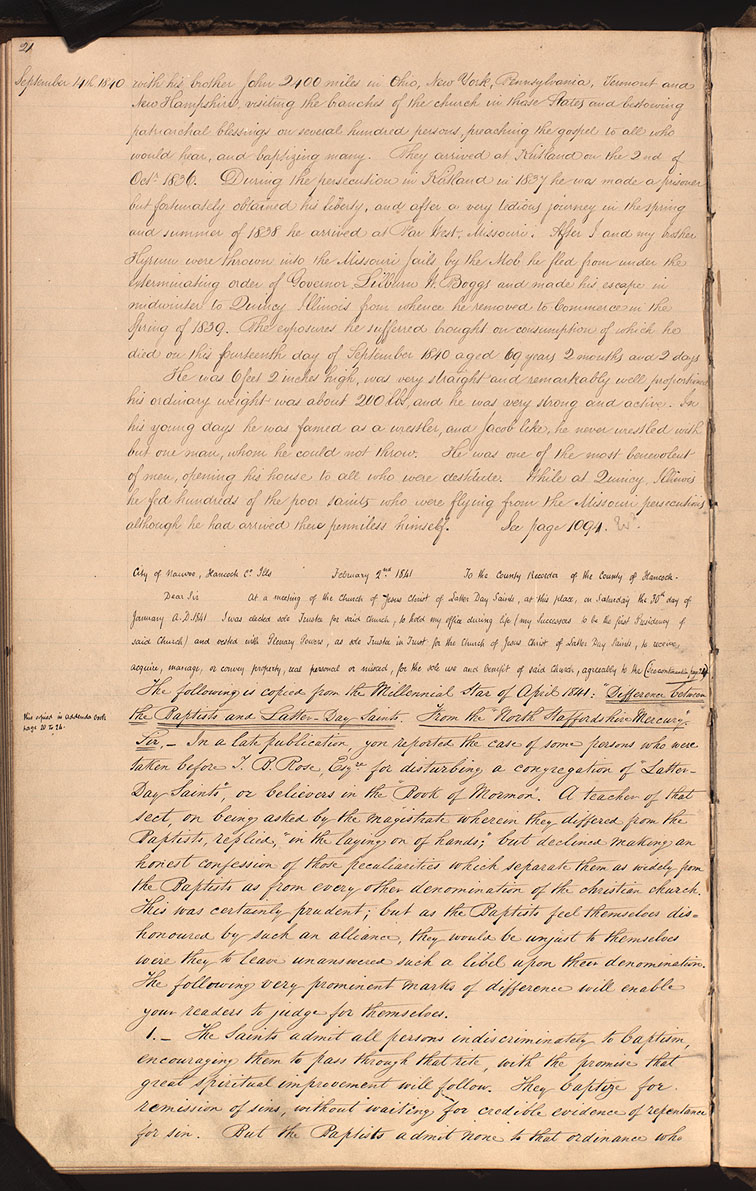 21
September 14th 1840 with his brother John 2400 miles in Ohio, New York, Pennsylvania, Vermont and
New Hampshire, visiting the branches of the church in those States and bestowing
patriarchal blessings on several hundred persons, preaching the gospel to all who
would hear, and baptizing many. They arrived at Kirtland on the 2nd of
Octr. 1836. During the persecution in Kirtland in 1837 he was made a prisoner
but fortunately obtained his liberty, and after a very tedious journey in the spring
and summer of 1838 he arrived at Far West, Missouri. After I and my brother
Hyrum were thrown into the Missouri jails by the Mob he fled from under the
exterminating order of Governor Lilburn W. Boggs and made his escape in
midwinter to Quincy Illinois from whence he removed to Commerce in the
Spring of 1839. The exposures he suffered brought on consumption of which he
died on this fourteenth day of September 1840 aged 69 years 2 months and 2 days
He was 6 feet 2 inches high, was very straight and remarkably well proportioned
his ordinary weight was about 200 lbs, and he was very strong and active. In
his young days he was famed as a wrestler, and Jacob like, he never wrestled with
but one man, whom he could not throw. He was one of the most benevolent
of men, opening his house to all who were destitute. While at Quincy, Illinois
he fed hundreds of the poor saints who were flying from the Missouri persecutions
although he had arrived there penniless himself. See page 1094.
City of Nauvoo, Hancock Co. Ills February 2nd 1841 To the County Recorder of the County of Hancock.
Dear Sir At a meeting of the Church of Jesus Christ of Latter Day Saints, at this place, on Saturday the 30th day of
January A.D. 1841 I was elected sole Trustee for said Church, to hold my office during life (my Successors to be the first Presidency of
said Church) and vested with Plenary Powers, as sole Trustee in Trust for the Church of Jesus Christ of Latter Day Saints, to receive,
acquire, manage, or convey property, real personal or mixed, for the sole use and benefit of said Church, agreeably to the (see continuation page 24
The following is copied from the Millennial Star of April 1841: "Difference between
this copied in addenda book
page 20 to 24.
the Baptists and Latter-Day Saints. From the "North Staffordshire Mercury".
Sir, - In a late publication, you reported the case of some persons who were
taken before T. B. Rose, Esqre for disturbing a congregation of "Latter-
Day Saints", or believers in the "Book of Mormon". A teacher of that
sect, on being asked by the magistrate wherein they differed from the
Baptists, replied, "in the laying on of hands;" but declined making an
honest confession of those peculiarities which separate them as widely from
the Baptists as from every other denomination of the christian church.
This was certainly prudent; but as the Baptists feel themselves dis-
honoured by such an alliance, they would be unjust to themselves
were they to leave unanswered such a libel upon their denomination.
The following very prominent marks of difference will enable
your readers to judge for themselves.
1. - The Saints admit all persons indiscriminately to baptism,
encouraging them to pass through that rite, with the promise that
great spiritual improvement will follow. They baptize for
remission of sins, without waiting for credible evidence of repentance
for sin. But the Baptists admit none to that ordinance who